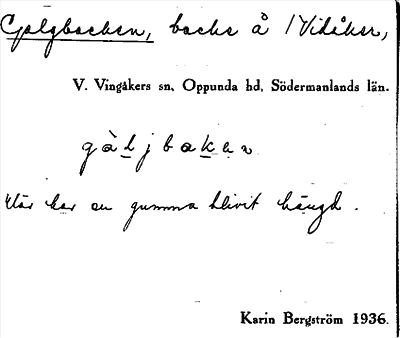 Galgbacken, backe å Vidåker,
V. Vingåkers sn, Oppunda hd, Södermanlands län.
gàljbakan
Här har en gumma blivit hängd.
Karin Bergström 1936.